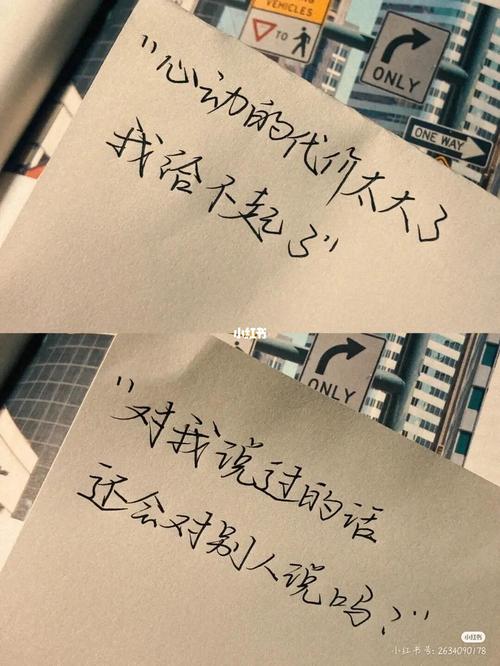 VEHICLES
TO
ONLY
ONE WAY
"心动的代价太大了
我给不起了"
小红书
ONLY
"对我说过的话
还会对别人说吗?"
小红书
小红书号: 2634090178